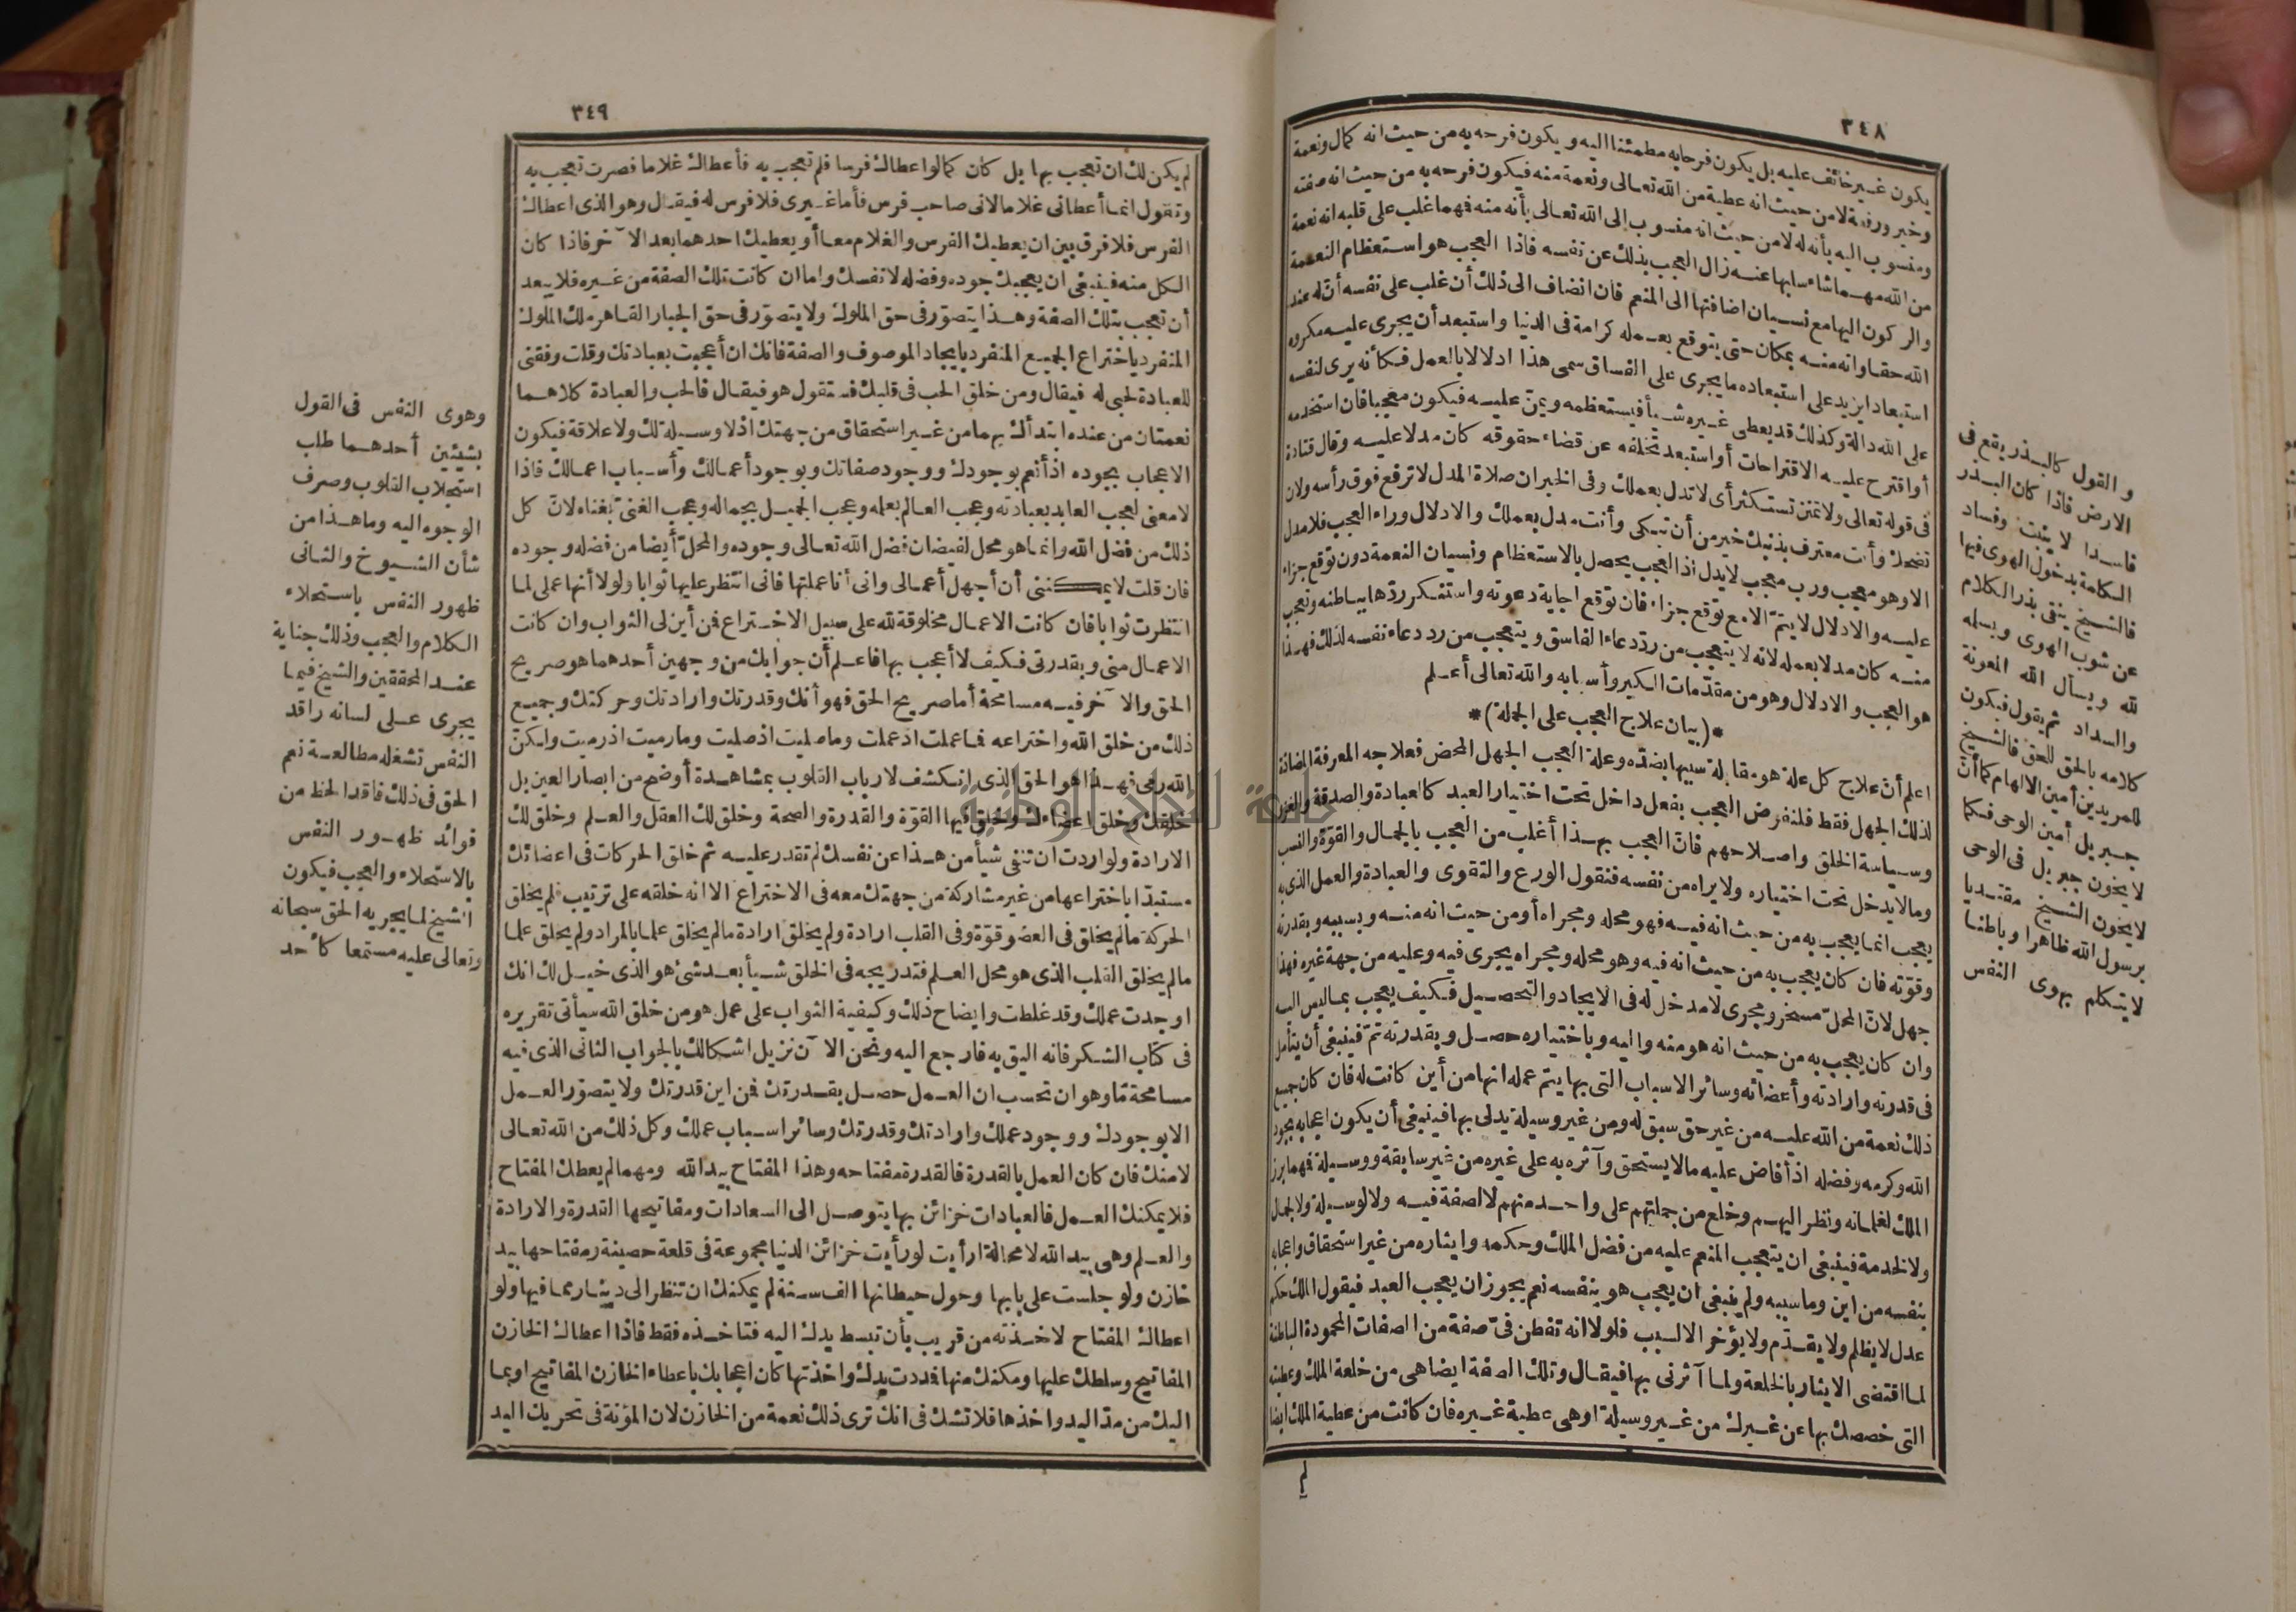 ٣٤٨
يكون غير خائف عليه بل يكون فرحا به مطمئنا اليه ويكون فرحه به من حيث انه كمال ونعمة
وخير ورفعة لا من حيث انه عطية من الله تعالى ونعمة منه فيكون فرحه به من حيث انه صفته
ومنسوب اليه بأنه له لا من حيث انه منسوب الى الله تعالى بأنه منه فهما غلب على قلبه انه نعمة
من الله مهما شاء سلبها عنه زال العجب بذلك عن نفسه فاذا العجب هو استعظام النعمة
والركون اليها مع نسيان اضافتها الى المنعم فان انضاف الى ذلك أن غلب على نفسه أن له عند
الله حقا وانه منه بمكان حتى يتوقع بعمله كرامة فى الدنيا واستبعد أن يجرى عليه مكروه
استبعادا يزيد على استبعاده ما يجرى على الفساق سمى هذا ادلالا بالعمل فكأنه يرى لنفسه
على الله دالة وكذلك قد يعطى غيره شيأ فيستعظمه ويمنّ عليه فيكون معجبا فان استخدمه
أو اقترح عليه الاقتراحات أو استبعد تخلفه عن قضاء حقوقه كان مدلا عليه وقال قتادة
فى قوله تعالى ولا تمنن تستكثر أى لا تدل بعملك وفى الخبر ان صلاة المدل لا ترفع فوق رأسه ولان
تضحك وأنت معترف بذنبك خير من أن تبكى وأنت مدل بعملك والادلال وراء العجب فلا مدل
الا وهو معجب ورب معجب لا يدل اذ العجب يحصل بالاستعظام ونسيان النعمة دون توقع جزاء
عليه والادلال لا يتمّ الا مع توقع جزاء فان توقع اجابة دعوته واستنكر ردّها بباطنه وتعجب
منه كان مدلا بعمله لانه لا يتعجب من ردّ دعاء الفاسق ويتعجب من رد دعاء نفسه لذلك فهذا
هو العجب والادلال وهو من مقدّمات الكبر وأسبابه والله تعالى أعلم
*(بيان علاج العجب على الجملة)*
اعلم أن علاج كل علة هو مقابلة سببها بضدّه وعلة العجب الجهل المحض فعلاجه المعرفة المضادّة
لذلك الجهل فقط فلنفرض العجب بفعل داخل تحت اختيار العبد كالعبادة والصدقة والغزو
وسياسة الخلق واصلاحهم فانّ العجب بهذا أغلب من العجب بالجمال والقوّة والنسب
ومالا يدخل تحت اختياره ولا يراه من نفسه فنقول الورع والتقوى والعبادة والعمل الذى به
يعجب انما يعجب به من حيث انه فيه فهو محله ومجراه أو من حيث انه منه وبسببه وبقدرته
وقوّته فان كان يعجب به من حيث انه فيه وهو محله ومجراه يجرى فيه وعليه من جهة غيره فهذا
جهل لانّ المحلّ مسخر ومجرى لا مدخل له فى الايجاد والتحصيل فكيف يعجب بما ليس اليه
وان كان يعجب به من حيث انه هو منه واليه وباختياره حصل وبقدرته تمّ فينبغى أن يتأمل
فى قدرته وارادته وأعضائه وسائر الاسباب التى بها يتم عمله انها من أين كانت له فان كان جميع
ذلك نعمة من الله عليه من غير حق سبق له ومن غير وسيلة يدلى بها فينبغى أن يكون اعجابه بجود
الله وكرمه وفضله اذ أفاض عليه مالا يستحق وآثره به على غيره من غير سابقة ووسيلة فهما برز
الملك لغلمانه ونظر اليهم وخلع من جملتهم على واحد منهم لا لصفة فيه ولا لوسيلة ولا لجمال
ولا لخدمة فينبغى ان يتعجب المنعم عليه من فضل الملك وحكمه وايثاره من غير استحقاق واعجابه
بنفسه من اين وما سببه ولم ينبغى ان يعجب هو بنفسه نعم يجوز ان يعجب العبد فيقول الملك حكم
عدل لا يظلم ولا يقدّم ولا يؤخر الا لسبب فلولا انه تفطن فىّ صفة من الصفات المحمودة الباطنة
لما اقتضى الايثار بالخلعة ولما آثرنى بها فيقال وتلك الصفة ايضا هى من خلعة الملك وعطيته
التى خصصك بها عن غيرك من غير وسيلة او هى عطية غيره فان كانت من عطية الملك ايضا
لم
والقول كالبذر يقع فى
الارض فاذا كان البذر
فاسدا لا ينبت وفساد
الكلمة بدخول الهوى فيها
فالشيخ ينقى بذر الكلام
عن شوب الهوى ويسلمه
لله ويسأل الله المعونة
والسداد ثم يقول فيكون
كلامه بالحق للحق فالشيخ
للمريدين أمين الالهام كما أن
جبريل أمين الوحى فكما
لا يخون جبريل فى الوحى
لا يخون الشيخ مقتديا
برسول الله ظاهرا وباطنا
لا يتكلم بهوى النفس
٣٤٩
لم يكن لك ان تعجب بها بل كان كما لو اعطاك فرسا فلم تعجب به فأعطاك غلاما فصرت تعجب به
وتقول انما أعطانى غلاما لانى صاحب فرس فأما غيرى فلا فرس له فيقال وهو الذى اعطاك
الفرس فلا فرق بين ان يعطيك الفرس والغلام معا أو يعطيك احدهما بعد الآخر فاذا كان
الكل منه فينبغى ان يعجبك جوده وفضله لا نفسك واما ان كانت تلك الصفة من غيره فلا يبعد
أن تعجب بتلك الصفة وهذا يتصوّر فى حق الملوك ولا يتصوّر فى حق الجبار القاهر ملك الملوك
المنفرد باختراع الجميع المنفرد بايجاد الموصوف والصفة فانك ان أعجبت بعبادتك وقلت وفقنى
للعبادة لحبى له فيقال ومن خلق الحب فى قلبك فستقول هو فيقال فالحب والعبادة كلاهما
نعمتان من عنده ابتدأك بهما من غير استحقاق من جهتك اذ لا وسيلة لك ولا علاقة فيكون
الاعجاب بجوده اذ أنعم بوجودك ووجود صفاتك وبوجود أعمالك وأسباب اعمالك فاذا
لا معنى لعجب العابد بعبادته وعجب العالم بعلمه وعجب الجميل بجماله وعجب الغنىّ بغناه لانّ كل
ذلك من فضل الله وانما هو محل لفيضان فضل الله تعالى وجوده والمحلّ أيضا من فضله وجوده
فان قلت لا يمكننى أن أجهل أعمالى وانى أنا عملتها فانى انتظر عليها ثوابا ولولا أنها عملى لما
انتظرت ثوابا فان كانت الاعمال مخلوقة لله على سبيل الاختراع فمن أين لى الثواب وان كانت
الاعمال منى وبقدرتى فكيف لا أعجب بها فاعلم أن جوابك من وجهين أحدهما هو صريح
الحق والآخر فيه مسامحة أما صريح الحق فهو أنك وقدرتك وارادتك وحركتك وجميع
ذلك من خلق الله واختراعه فما عملت اذ عملت وما صليت اذ صليت وما رميت اذ رميت ولكنّ
الله رمى فهذا هو الحق الذى انكشف لارباب القلوب بمشاهدة أوضح من ابصار العين بل
خلقك وخلق اعضاءك وخلق فيها القوّة والقدرة والصحة وخلق لك العقل والعلم وخلق لك
الارادة ولو اردت ان تنفى شيأ من هذا عن نفسك لم تقدر عليه ثم خلق الحركات فى اعضائك
مستبدا باختراعها من غير مشاركة من جهتك معه فى الاختراع الا انه خلقه على ترتيب فلم يخلق
الحركة ما لم يخلق فى العضو قوّة وفى القلب ارادة ولم يخلق ارادة ما لم يخلق علما بالمراد ولم يخلق علما
ما لم يخلق القلب الذى هو محل العلم فتدريجه فى الخلق شيأ بعد شئ هو الذى خيل لك انك
اوجدت عملك وقد غلطت وايضاح ذلك وكيفية الثواب على عمل هو من خلق الله سيأتى تقريره
فى كتاب الشكر فانه اليق به فارجع اليه ونحن الآن نزيل اشكالك بالجواب الثانى الذى فيه
مسامحة ما وهو ان تحسب ان العمل حصل بقدرتك فمن اين قدرتك ولا يتصوّر العمل
الا بوجودك ووجود عملك وارادتك وقدرتك وسائر اسباب عملك وكل ذلك من الله تعالى
لا منك فان كان العمل بالقدرة فالقدرة مفتاحه وهذا المفتاح بيد الله ومهما لم يعطك المفتاح
فلا يمكنك العمل فالعبادات خزائن بها يتوصل الى السعادات ومفاتيحها القدرة والارادة
والعلم وهى بيد الله لا محالة ارأيت لو رأيت خزائن الدنيا مجموعة فى قلعة حصينة ومفتاحها بيد
خازن ولو جلست على بابها وحول حيطانها الف سنة لم يمكنك ان تنظر الى دينار مما فيها ولو
اعطاك المفتاح لاخذته من قريب بأن تبسط يدك اليه فتأخذه فقط فاذا اعطاك الخازن
المفاتيح وسلطك عليها ومكنك منها فددت يدك واخذتها كان اعجابك باعطاء الخازن المفاتيح او بما
اليك من مدّ اليد واخذها فلا تشك فى انك ترى ذلك نعمة من الخازن لان المؤنة فى تحريك اليد
وهوى النفس فى القول
بشيئين أحدهما طلب
استجلاب القلوب وصرف
الوجوه اليه وما هذا من
شأن الشيوخ والثانى
ظهور النفس باستحلاء
الكلام والعجب وذلك جناية
عند المحققين والشيخ فيما
يجرى على لسانه راقد
النفس تشغله مطالعة نعم
الحق فى ذلك فاقد الحظ من
فوائد ظهور النفس
بالاستحلاء والعجب فيكون
الشيخ لما يجريه الحق سبحانه
وتعالى عليه مستمعا كأحد
جامعة النجاح الوطنية